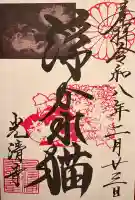 奉拝 令和八年二月廿三日
浮かれ猫
光清寺